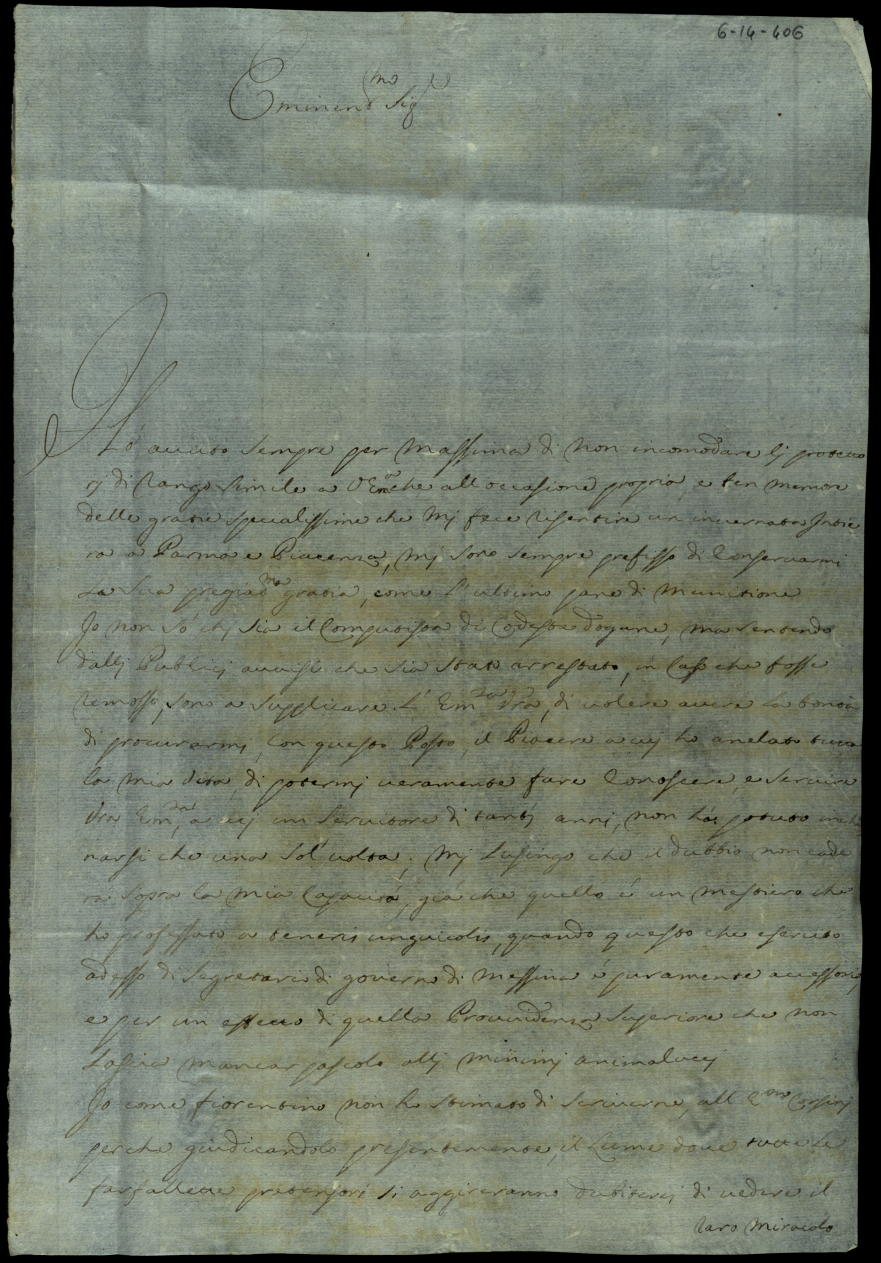 6-14-406
Eminen.mo Sig.r
Hò auuto sempre per Massima di non incomodare lj protetto
rj di rango simile a V. Em.za che all'occasione propria, e ben memore
delle gratie specialissime che Mj fece risentire un inuernata Intie
ra a Parma e Piacenza, Mj sono sempre prefisso di Conseruarmi
La Sua pregiad.ma gratia, come L'ultimo pane di Munitione
Jo non sò chj sia il Computista di Codeste dogane, ma sentendo
dallj Publicj auuisi che sia stato arrestato, in Caso che fosse
remosso, sono a supplicare L' Em.za Vra, di uolere auere la bontà
di procurarmi, con questo Posto, il Piacere a cuj ho anelato tutta
la mia Vita, di potermj ueramente fare Conoscere, e Seruire
Vra Em.za, a cuj un Seruitore di tanti anni, non hà potuto inchi
narsi che una Sol' uolta; Mj Lusingo che il dubbio non cade
rà sopra la Mia Capacità, già che quello è un Mestiero che
ho professato a teneris unguicolis, quando questo che eserceto
adesso di Segretario di gouerno di Messina è puramente accessorio
e per un effetto di quella Prouuidenza Superiore che non
Lascia mancar pascolo allj Minimj animaluccj
Jo come fiorentino non ho stimato di Scriuerne, all' E.mo Corsinj
perche giudicandolo presentemente, il Lume doue tutte Le
farfallette pretensori si aggireranno dubiterej di uedere il
raro Miracolo